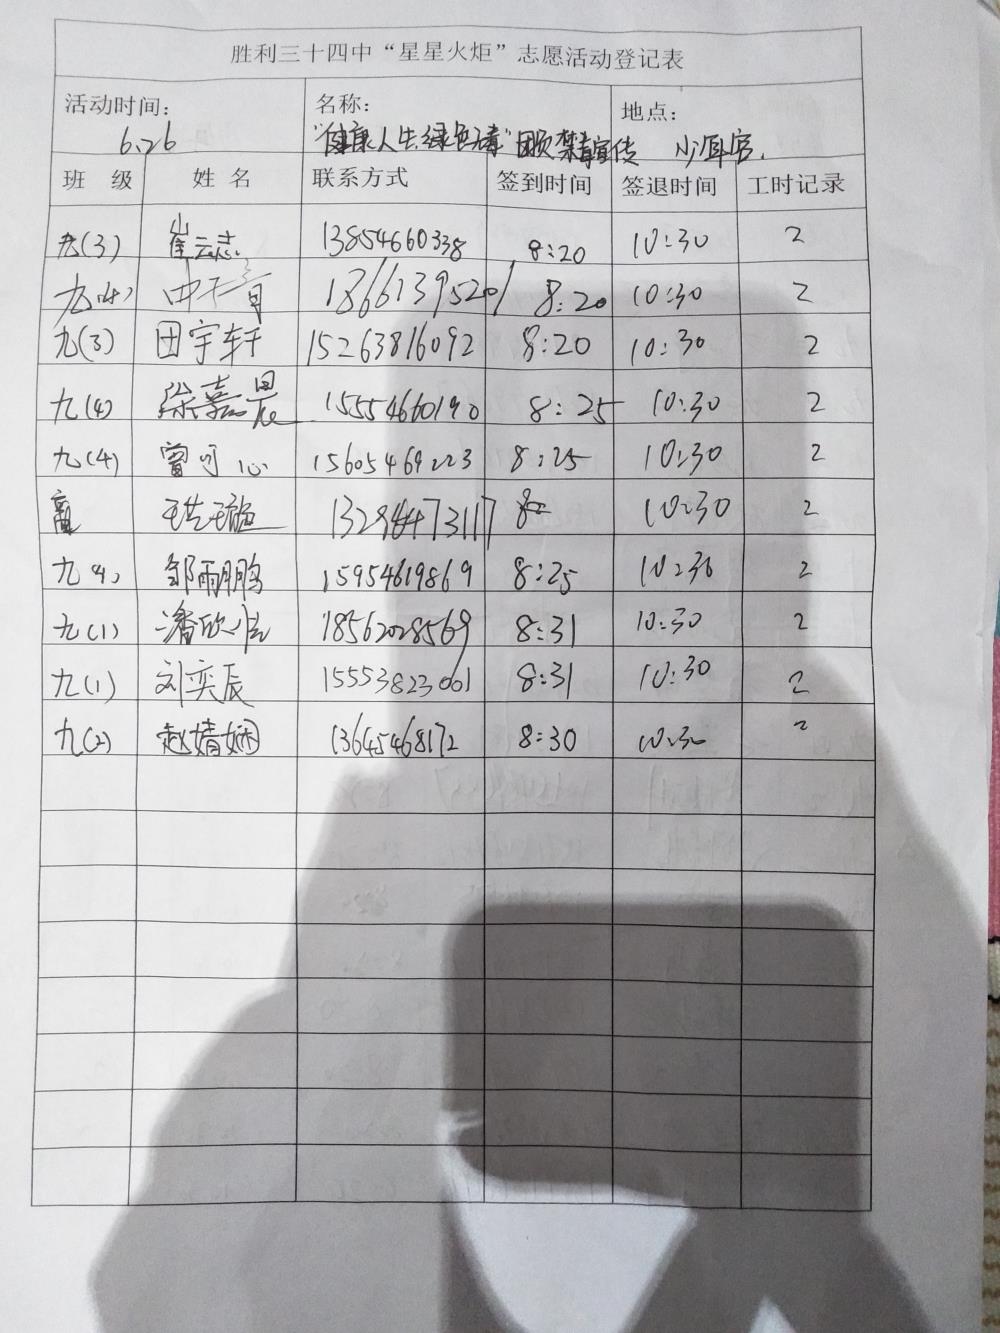 胜利三十四中“星星火炬”志愿活动登记表
活动时间： 名称： 地点：
6.26 “健康人生 绿色无毒”团员禁毒宣传 少年宫.
班 级 姓 名 联系方式 签到时间 签退时间 工时记录
九(3) 崔云志 13854660338 8:20 10:30 2
九(4) 18661395201 8:20 10:30 2
九(3) 田宇轩 15263816092 8:20 10:30 2
九(4) 徐嘉晨 15554660190 8:25 10:30 2
九(4) 曾可心 15605469223 8:25 10:30 2
13284473117 10:30 2
九(4) 邹雨鹏 15954619869 8:25 10:30 2
九(1) 潘欣 18562028569 8:31 10:30 2
九(1) 刘奕辰 15553823061 8:31 10:30 2
九(2) 赵婧娴 13645468172 8:30 10:30 2